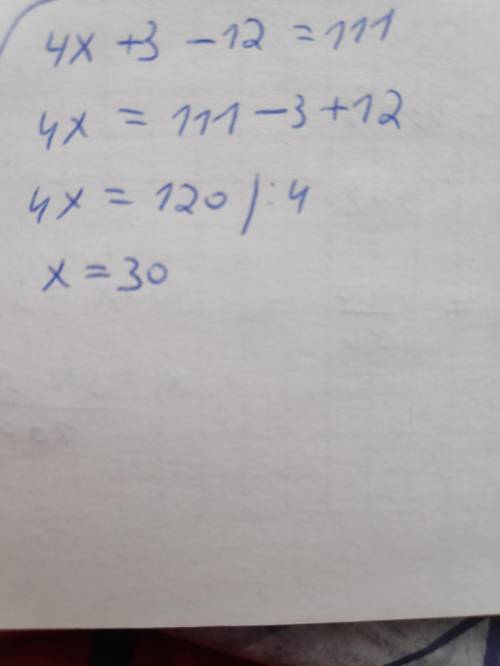 4x +3 -12 = 111
4x = 111 - 3 + 12
4x = 120 / : 4
x = 30